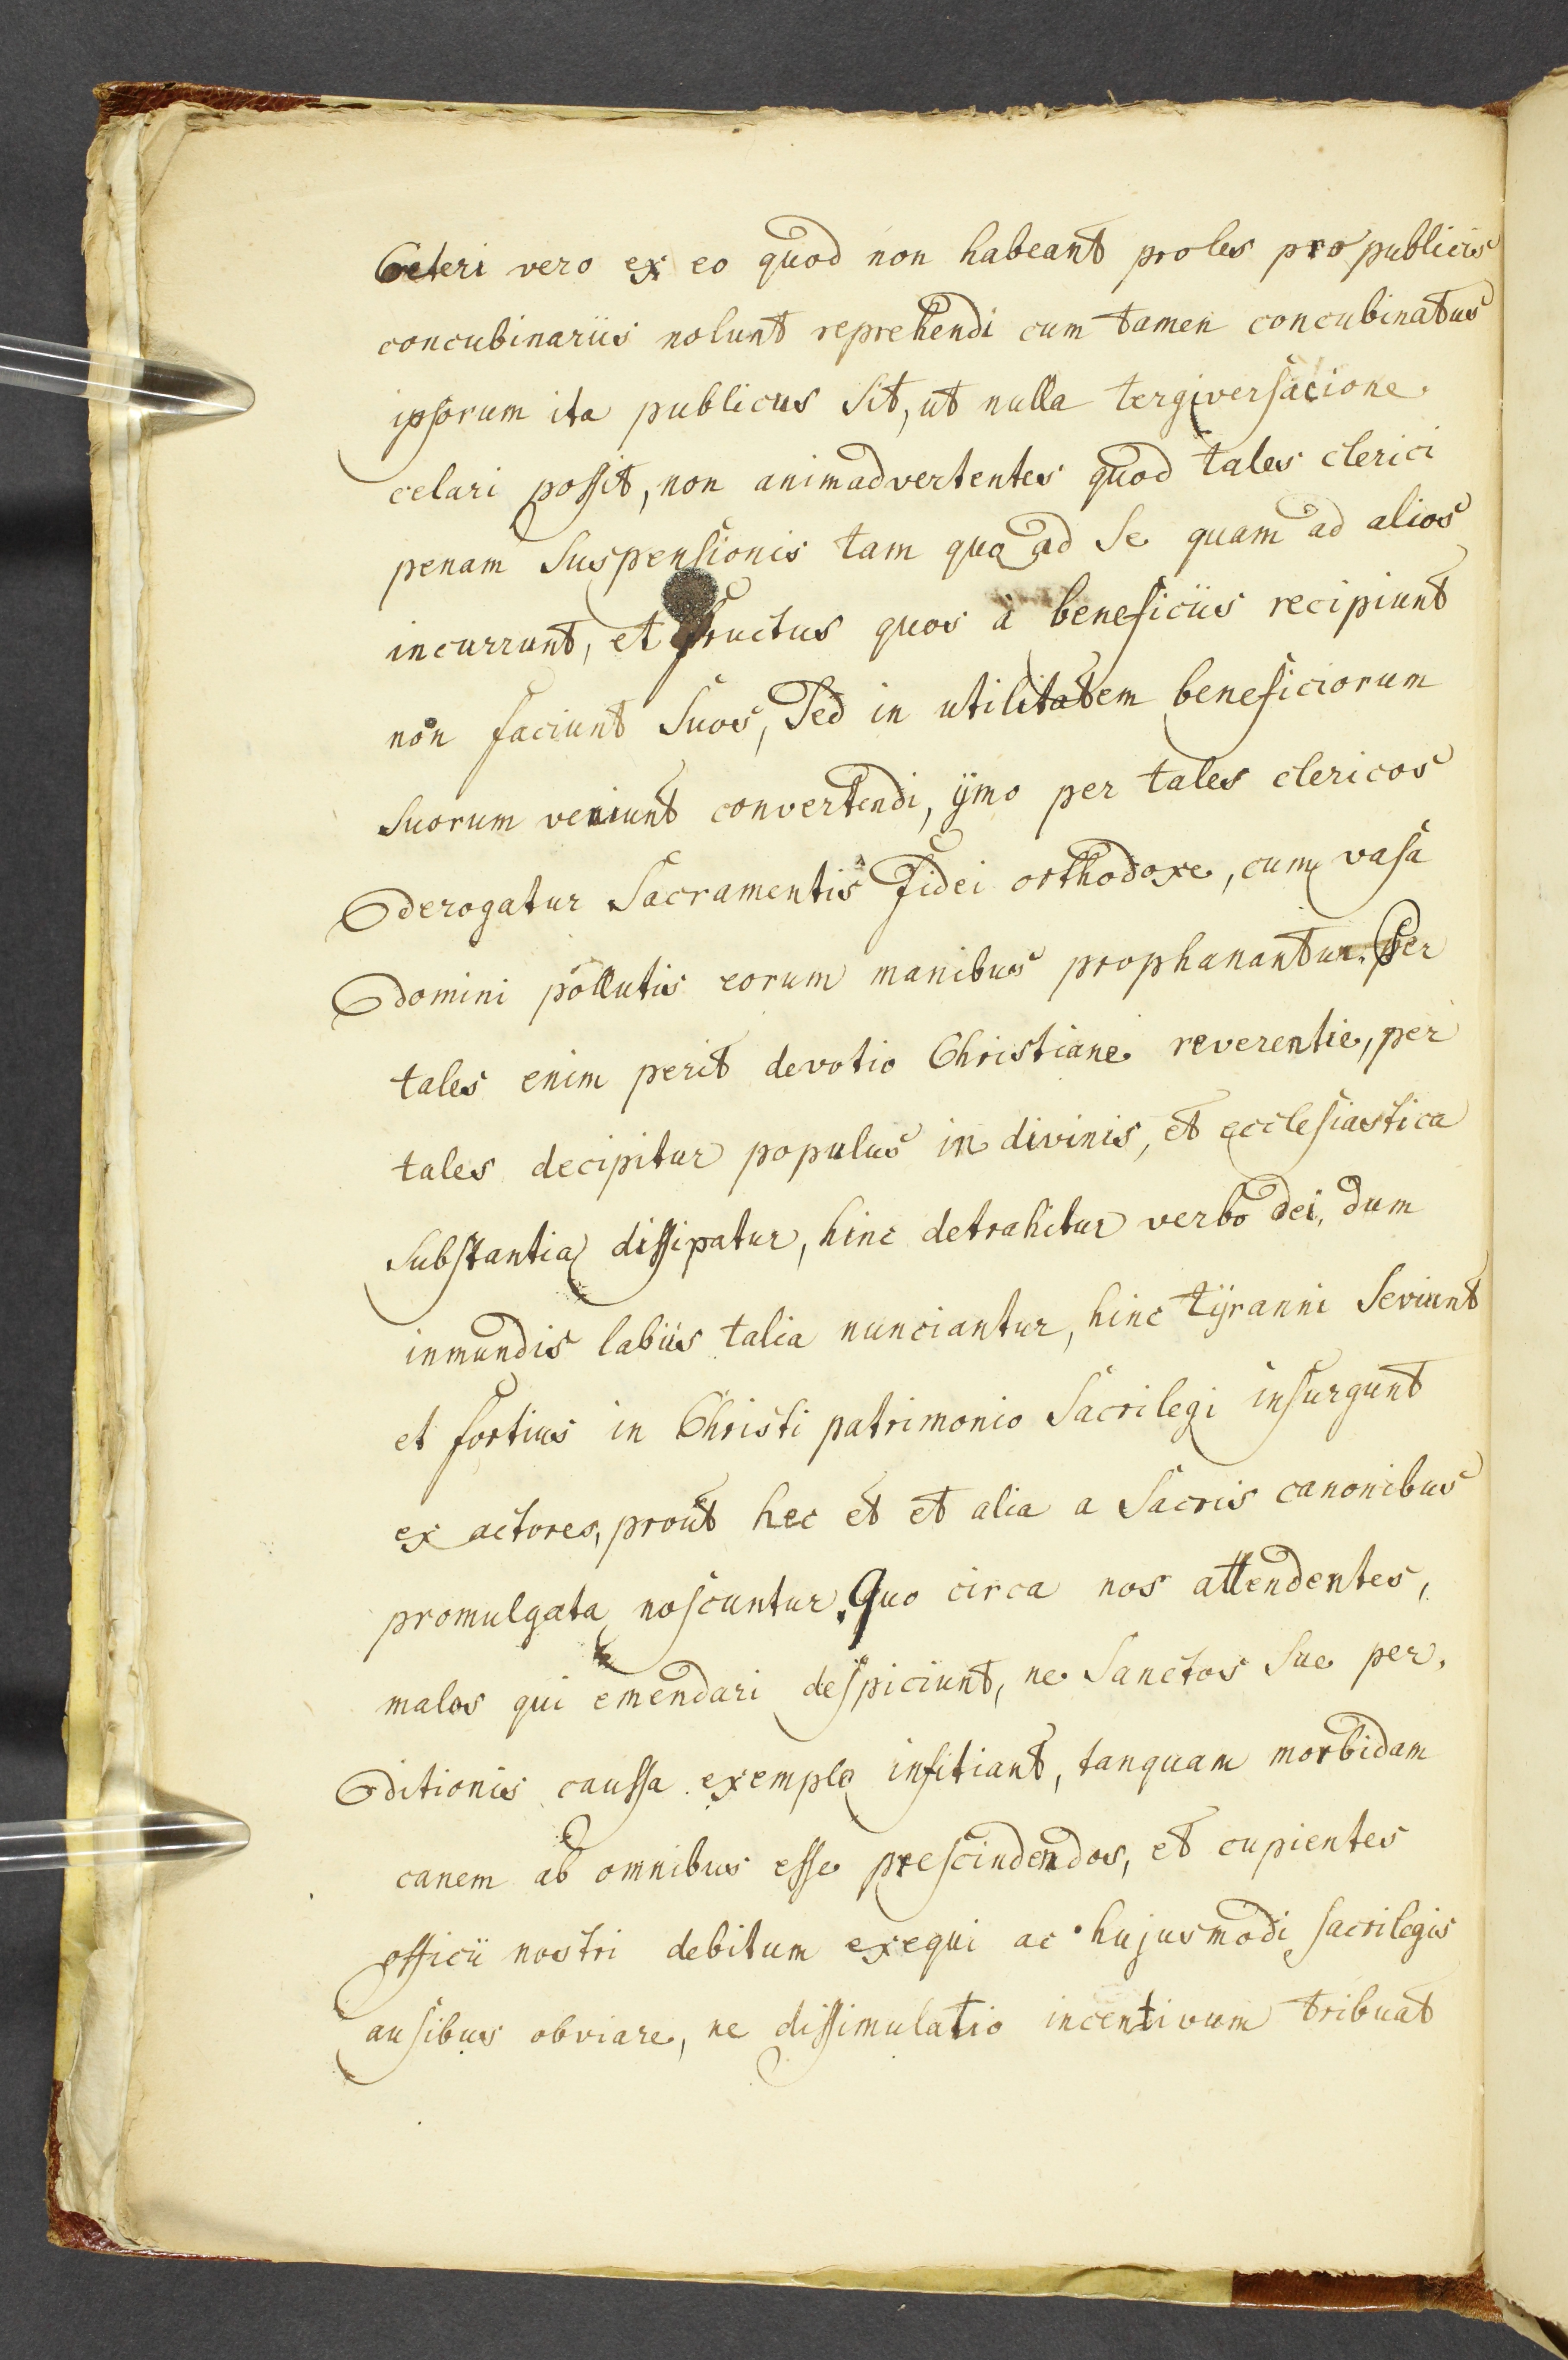 Ceteri vero ex eo quod non habeant proles pro publicis
concubinariis nolunt reprehendi cum tamen concubinatus
ipsorum ita publicus sit, ut nulla tergiversacione
celari possit, non animadvertentes quod tales clerici
penam suspensionis tam quo ad se quam ad alios
incurrunt, et fructus quos à beneficiis recipiunt
non faciunt suos, sed in utilitatem beneficiorum
suorum veniunt convertendi, ÿmo per tales clericos
derogatur sacramentis fidei orthodoxe, cum vasa
domini pollutis eorum manibus prophanantur. Per
tales enim perit devotio Christiane reverentie, per
tales decipitur populus in divinis, et ecclesiastica
substantia dissipatur, hinc detrahitur verbo dei, dum
inmundis labiis talia nunciantur, hinc tÿranni seviunt
et fortius in Christi patrimonio sacrilegi insurgunt
ex actores, prout hec et et alia a sacris canonibus
promulgata noscuntur. Quo circa nos attendentes,
malos qui emendari despiciunt, ne sanctos sue per,
ditionis caussa exemplo infitiant, tanquam morbidam
canem ab omnibus esse prescindendos, et cupientes
officii nostri debitum exequi ac hujusmodi sacrilegis
ausibus obviare, ne dissimulatio incentivum tribuat